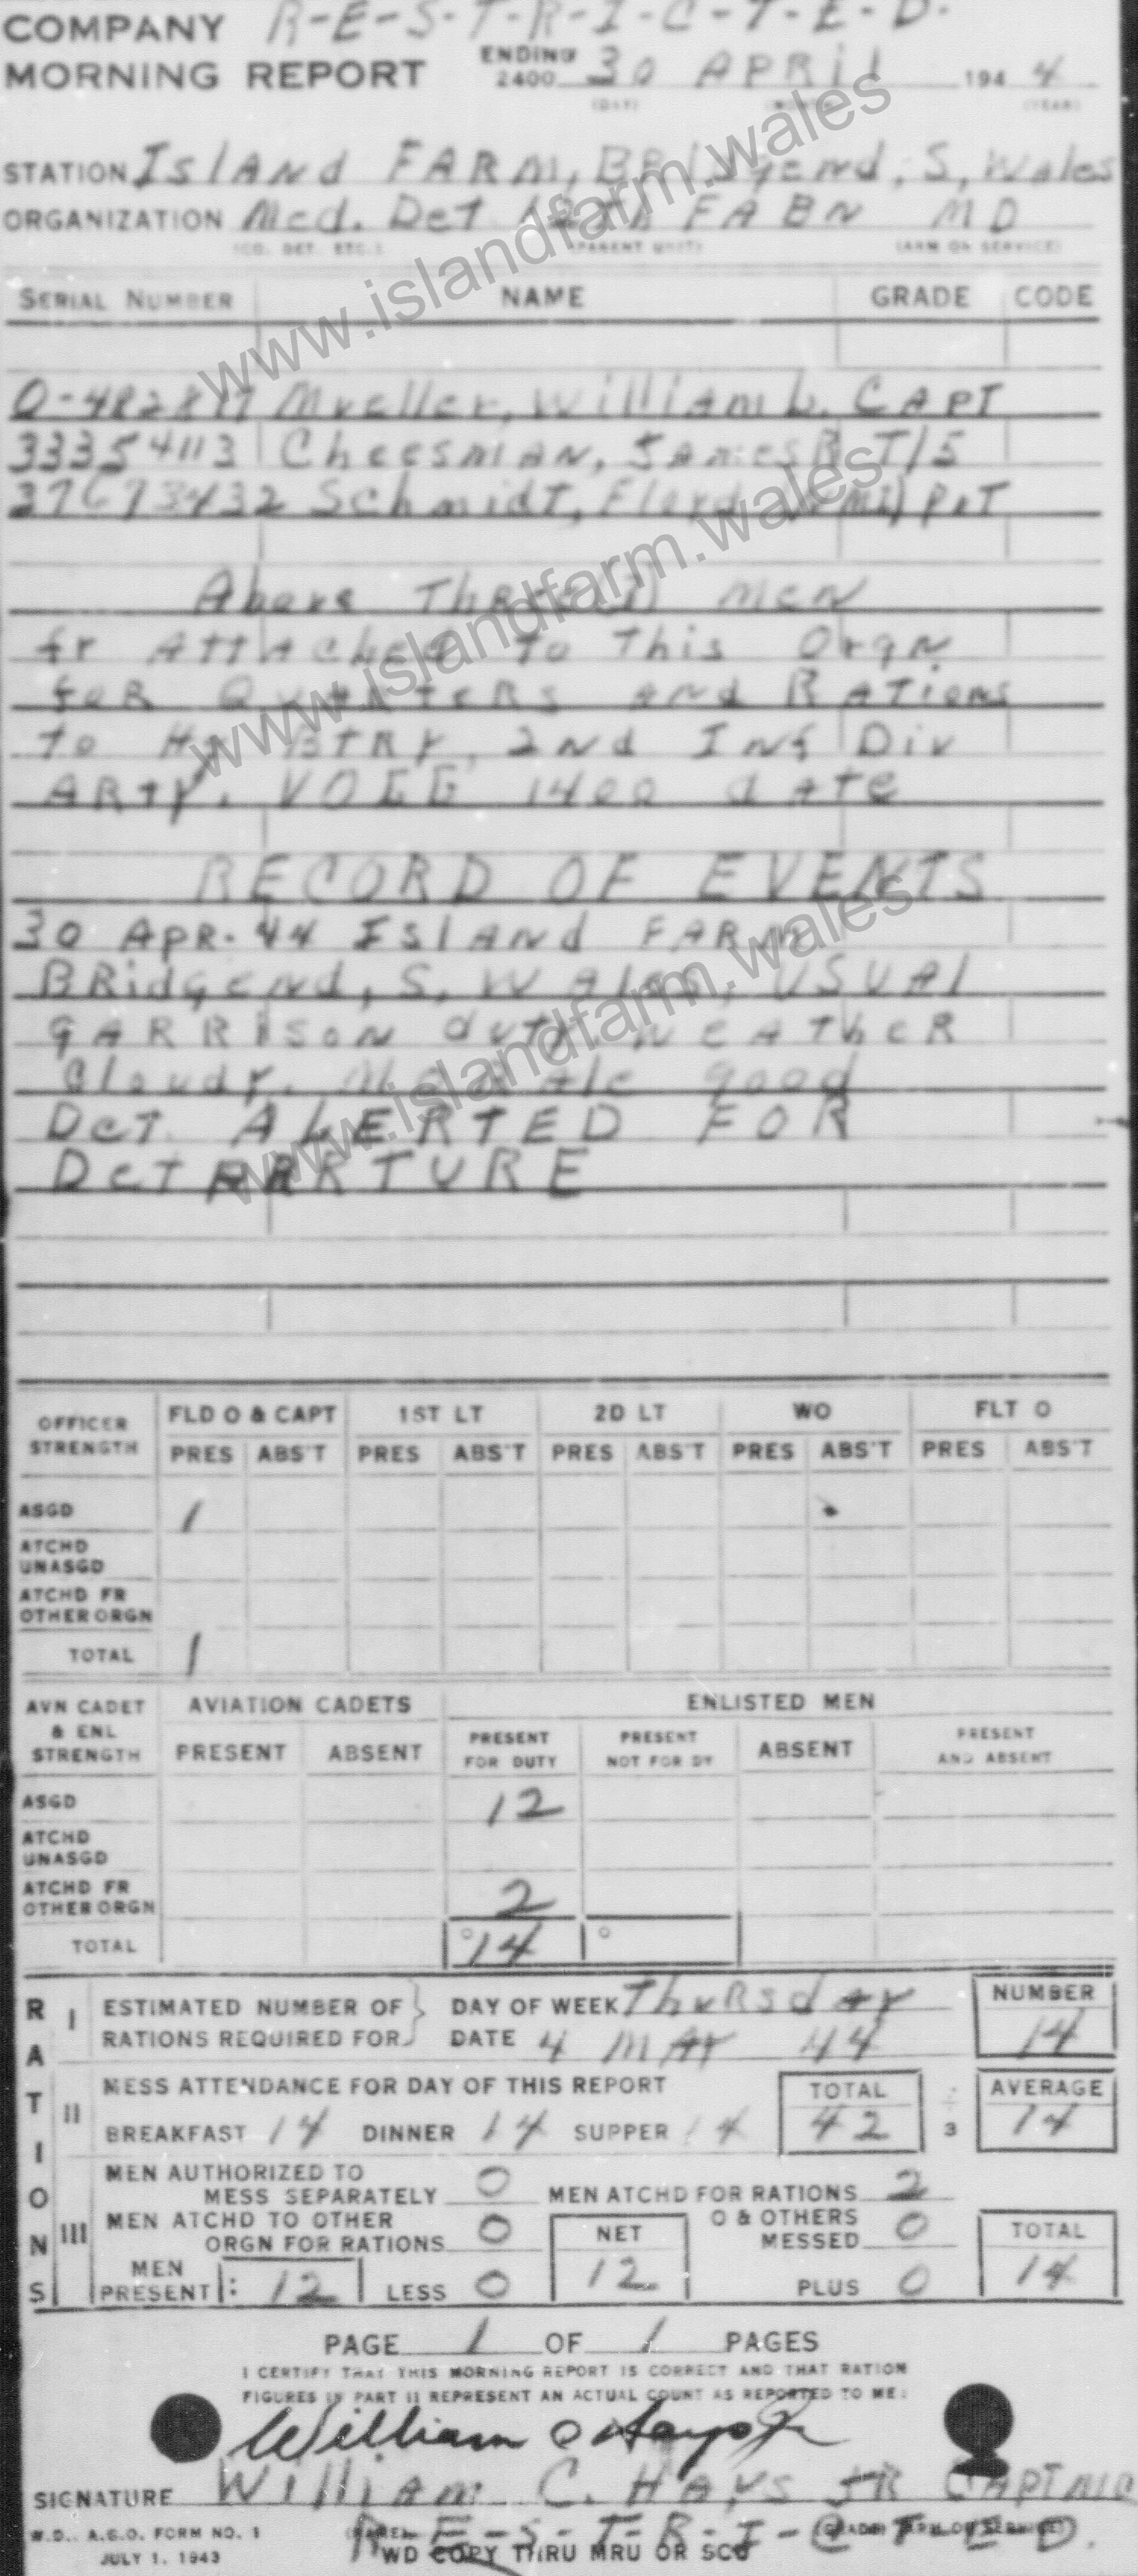 R-E-S-T-R-I-C-T-E-D.
COMPANY
MORNING REPORT ENDING 2400 30 APRil 1944
(DAY) (MONTH) (YEAR)
STATION IslANd FARM, BRidgend, S, Wales
ORGANIZATION Med. Det FABN MD
(CO. DET. ETC.) (PARENT UNIT) (ARM OR SERVICE)
SERIAL NUMBER NAME GRADE CODE
Mueller, William L. CAPT
33354113 CheesmAN, JAmes R T/5
37673432 Schmidt, Floyd PvT
Above Three(3) men
fr ATTAched To This Orgn
foR QuARTeRs ANd RATions
to Hq BTRY, 2Nd INf Div
ARTY. 1400 dATe
RECORD OF EVENTS
30 APR. 44 IslANd FARM
BRidgeNd, S. WAles, USUAl
gARRisoN duty. WeATheR
Cloudy. MoRAle good
DeT. ALERTED FOR
DeTPARTURE
OFFICER STRENGTH FLD O & CAPT 1ST LT 2D LT WO FLT O
PRES ABS'T PRES ABS'T PRES ABS'T PRES ABS'T PRES ABS'T
ASGD 1
ATCHD UNASGD
ATCHD FR OTHER ORGN
TOTAL 1
AVN CADET & ENL STRENGTH AVIATION CADETS ENLISTED MEN
PRESENT ABSENT PRESENT FOR DUTY PRESENT NOT FOR DY ABSENT PRESENT AND ABSENT
ASGD 12
ATCHD UNASGD
ATCHD FR OTHER ORGN 2
TOTAL 14
RATIONS
I ESTIMATED NUMBER OF RATIONS REQUIRED FOR DAY OF WEEK ThuRsdAy NUMBER
DATE 4 MAY 44 14
II MESS ATTENDANCE FOR DAY OF THIS REPORT TOTAL AVERAGE
BREAKFAST 14 DINNER 14 SUPPER 14 42 ÷ 3 14
III MEN AUTHORIZED TO MESS SEPARATELY 0 MEN ATCHD FOR RATIONS 2
MEN ATCHD TO OTHER ORGN FOR RATIONS 0 NET O & OTHERS MESSED 0 TOTAL
MEN PRESENT: 12 LESS 0 12 PLUS 0 14
PAGE 1 OF 1 PAGES
I CERTIFY THAT THIS MORNING REPORT IS CORRECT AND THAT RATION
FIGURES IN PART II REPRESENT AN ACTUAL COUNT AS REPORTED TO ME:
William C Hays Jr
SIGNATURE William C. HAYS JR CAPT
R-E-S-T-R-I-C-T-E-D.
W.D., A.G.O. FORM NO. 1
JULY 1, 1943
WD COPY THRU MRU OR SCU
www.islandfarm.wales
www.islandfarm.wales
www.islandfarm.wales